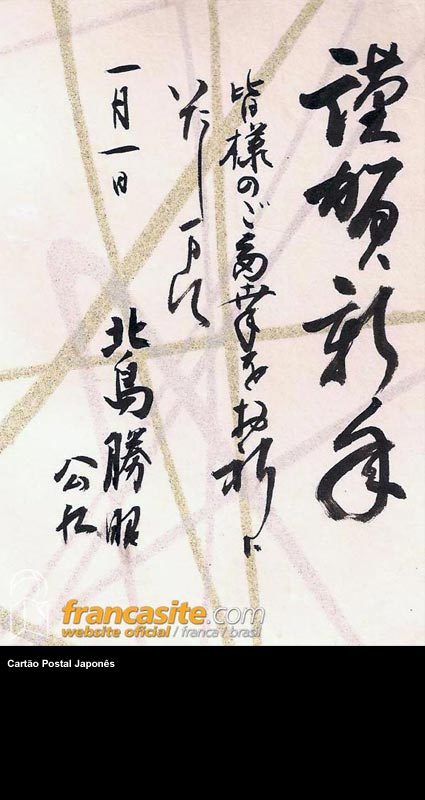 謹賀新年
皆様のご多幸をお祈り
いたします
一月一日
北島勝昭
francasite.com
website oficial / franca / brasil
Cartão Postal Japonês